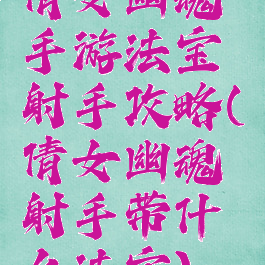 倩女幽魂
手游法宝
射手攻略(
倩女幽魂
射手带什
么法宝)